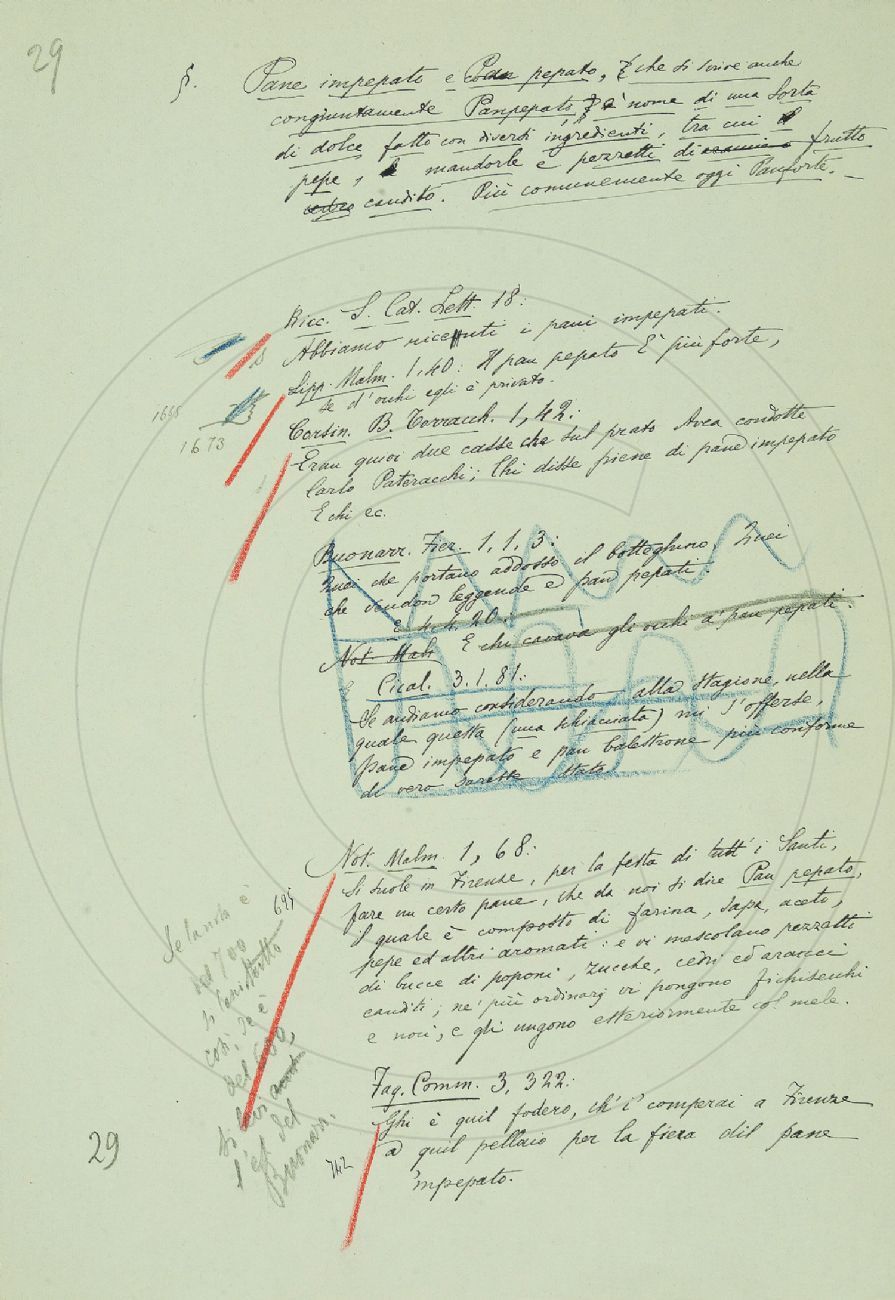 29
§. Pane impepato e Pan pepato, che si scrive anche
congiuntamente Panpepato, è nome di una sorta
di dolce, fatto con diversi ingredienti, tra cui
pepe, mandorle e pezzetti di frutto
candito. Più comunemente oggi Panforte. —
Ricc. S. Cat. Lett. 18:
Abbiamo ricevuti i pani impepati.
Lipp. Malm. 1, 40: Il pan pepato È più forte,
Se d'occhi egli è privato.
1645
1673
Corsin. B. Torracch. 1, 42:
Eran quivi due casse che sul prato Avea condotte
Carlo Pateracchi; Chi disse piene di pane impepato
E chi ec.
Buonarr. Fier. 1, 1, 3:
che portano addosso il botteghino,
che vendon leggende e pan pepati.
E 4. 4. 20: E chi cavava gli occhi a' pan pepati.
Not. Malm
E Cical. 3. 1. 81:
Se andiamo considerando alla stagione, nella
quale questa (una schiacciata) mi s'offerse,
pane impepato e pan balestrone più conforme
di vero sarebbe stato.
Not. Malm. 1, 68:
Si suole in Firenze, per la festa di tutt' i Santi,
fare un certo pane, che da noi si dice Pan pepato,
il quale è composto di farina, sapa, aceto,
pepe ed altri aromati: e vi mescolano pezzetti
di bucce di poponi, zucche, cedri ed aranci
canditi; ne' più ordinarj vi pongono fichi secchi
e noci, e gli ungono esteriormente col mele.
695
Se la nota è
del 700
si
così, se è
del 600,
si
l'es. del
Buonarr.
Fag. Comm. 3, 322:
Ghi è quil fodero, ch' i' comperai a Firenze
a quil pellaio per la fiera dil pane
'mpepato.
742
29